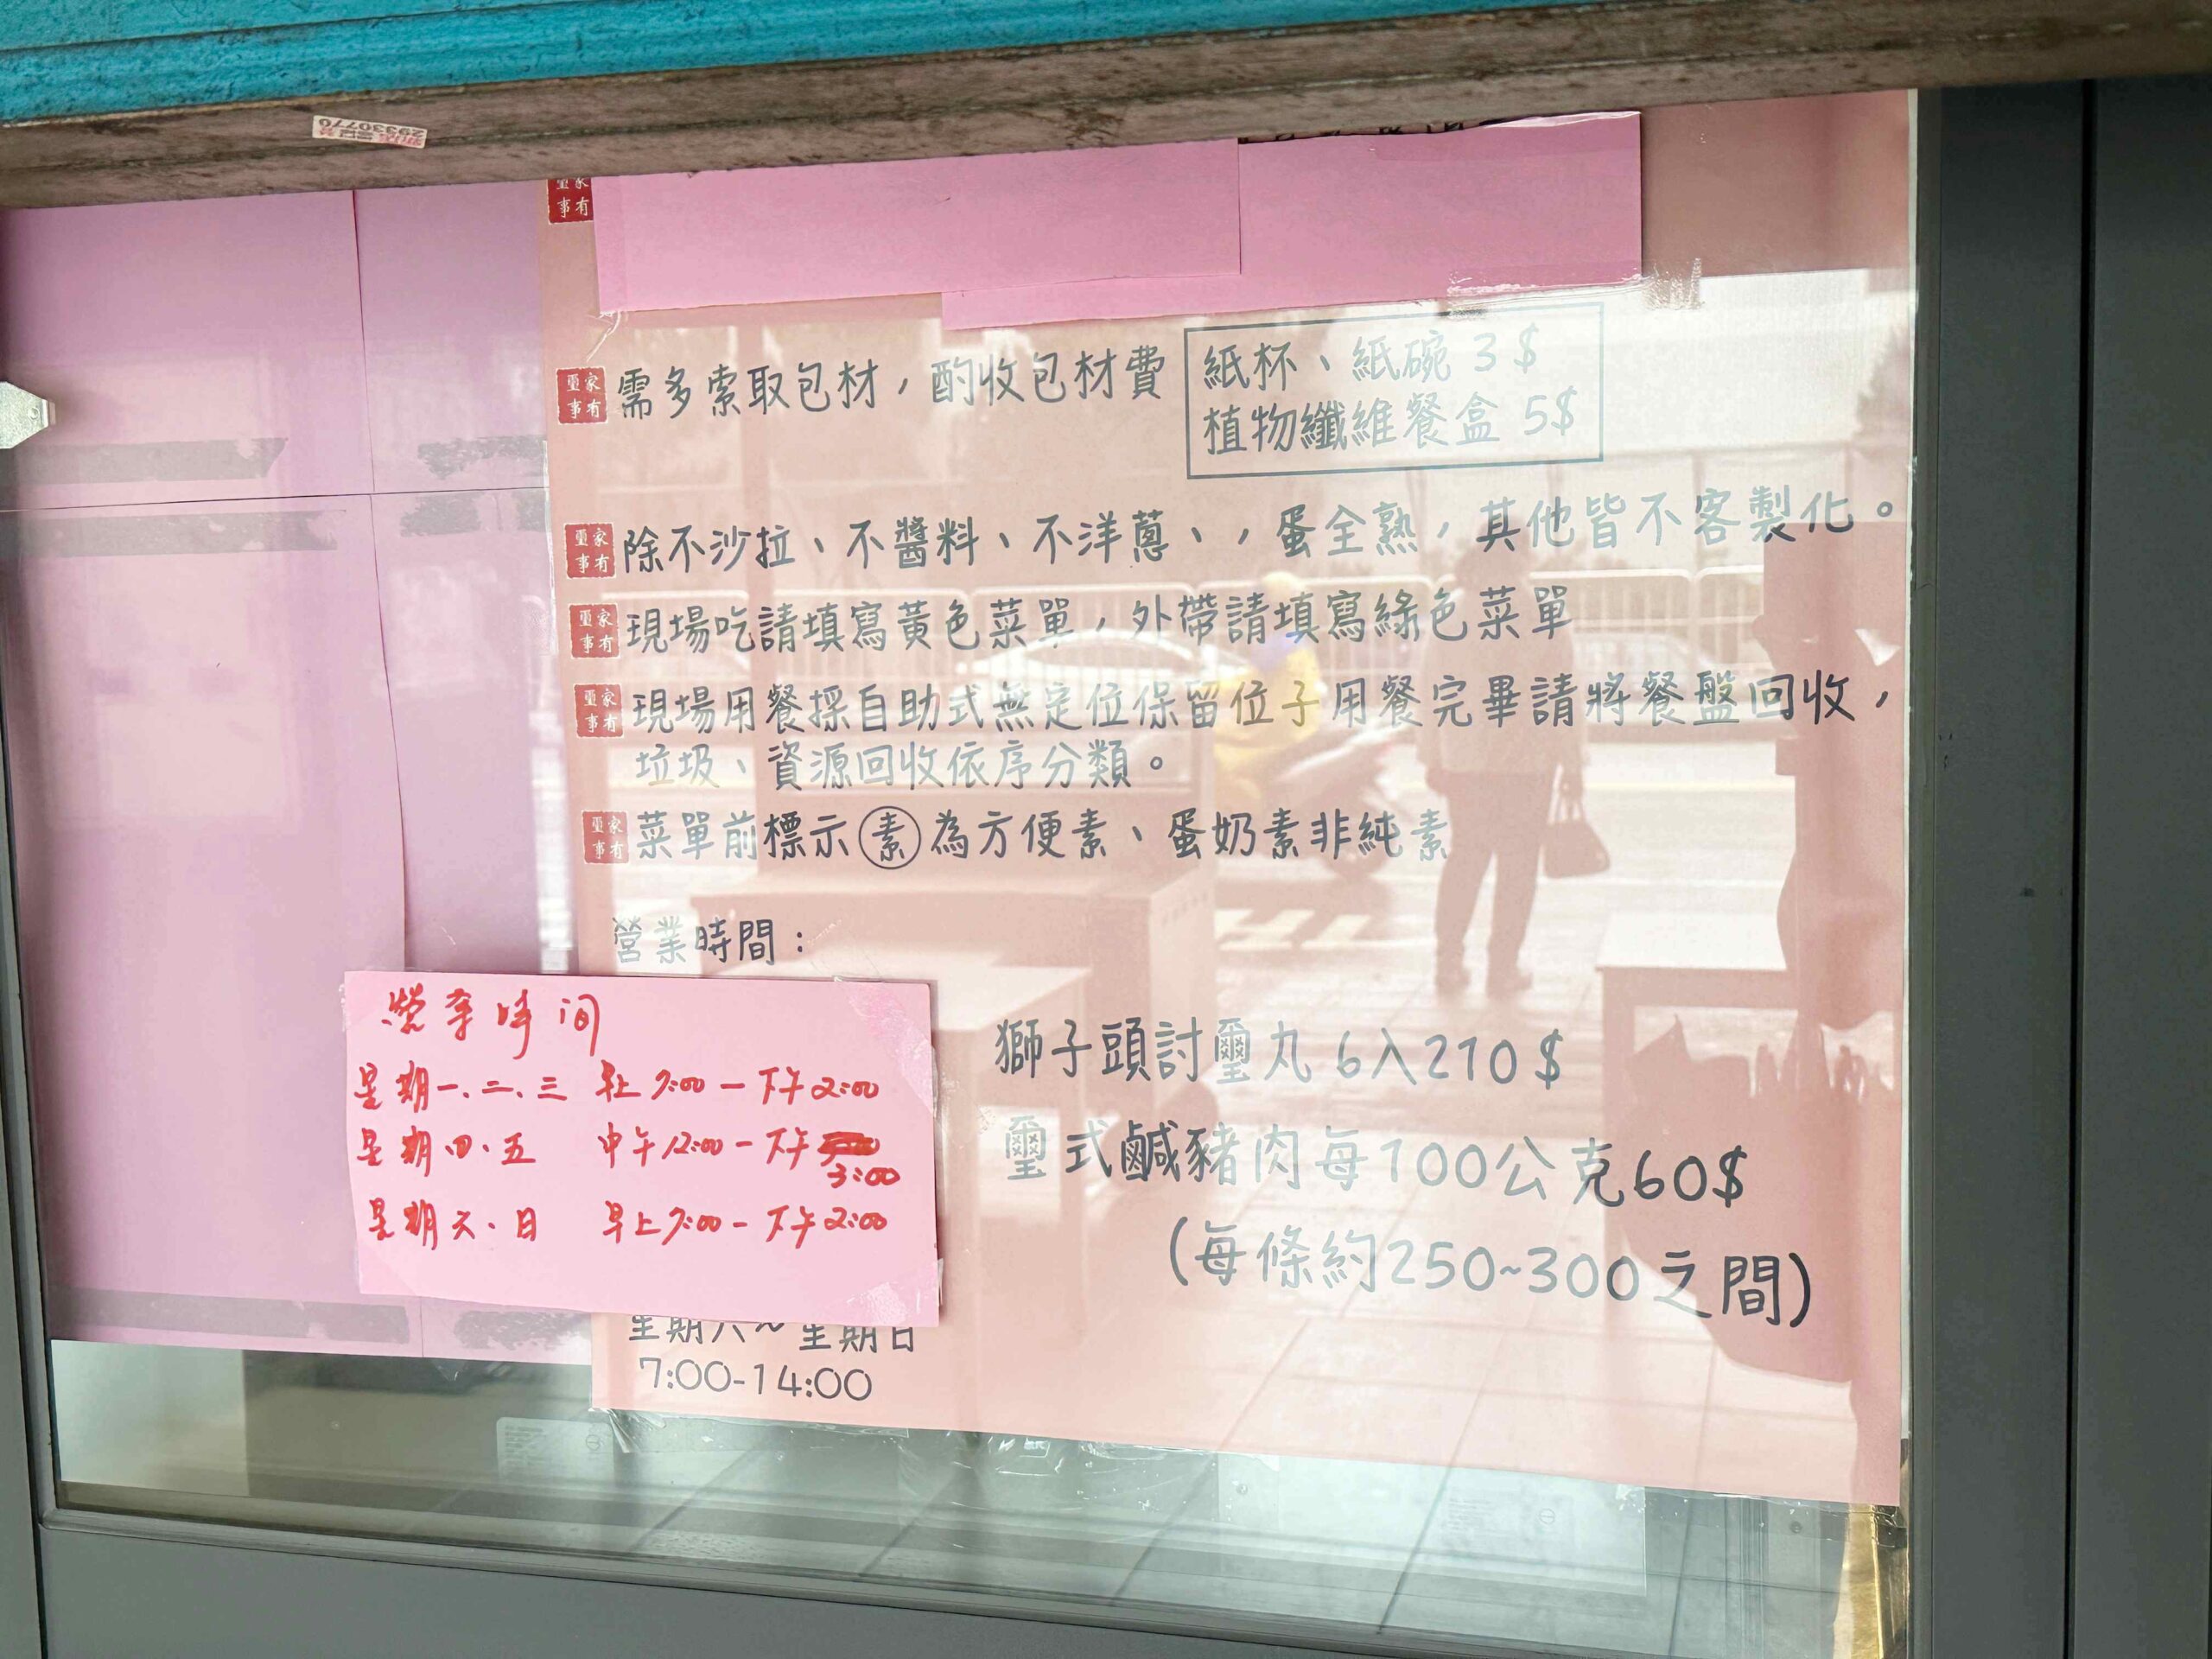 29330770
事有
家有璽事 需多索取包材，酌收包材費
紙杯、紙碗 3$
植物纖維餐盒 5$
家有璽事 除不沙拉、不醬料、不洋蔥、，蛋全熟，其他皆不客製化。
家有璽事 現場吃請填寫黃色菜單，外帶請填寫綠色菜單
家有璽事 現場用餐採自助式無定位保留位子用餐完畢請將餐盤回收，
垃圾、資源回收依序分類。
家有璽事 菜單前標示素為方便素、蛋奶素非純素
營業時間：
营業时间
星期一、二、三 早上7:00－下午2:00
星期四、五 中午12:00－下午
3:00
星期六、日 早上7:00－下午2:00
星期六~星期日
7:00-14:00
獅子頭討璽丸 6入210$
璽式鹹豬肉每100公克60$
(每條約250~300之間)